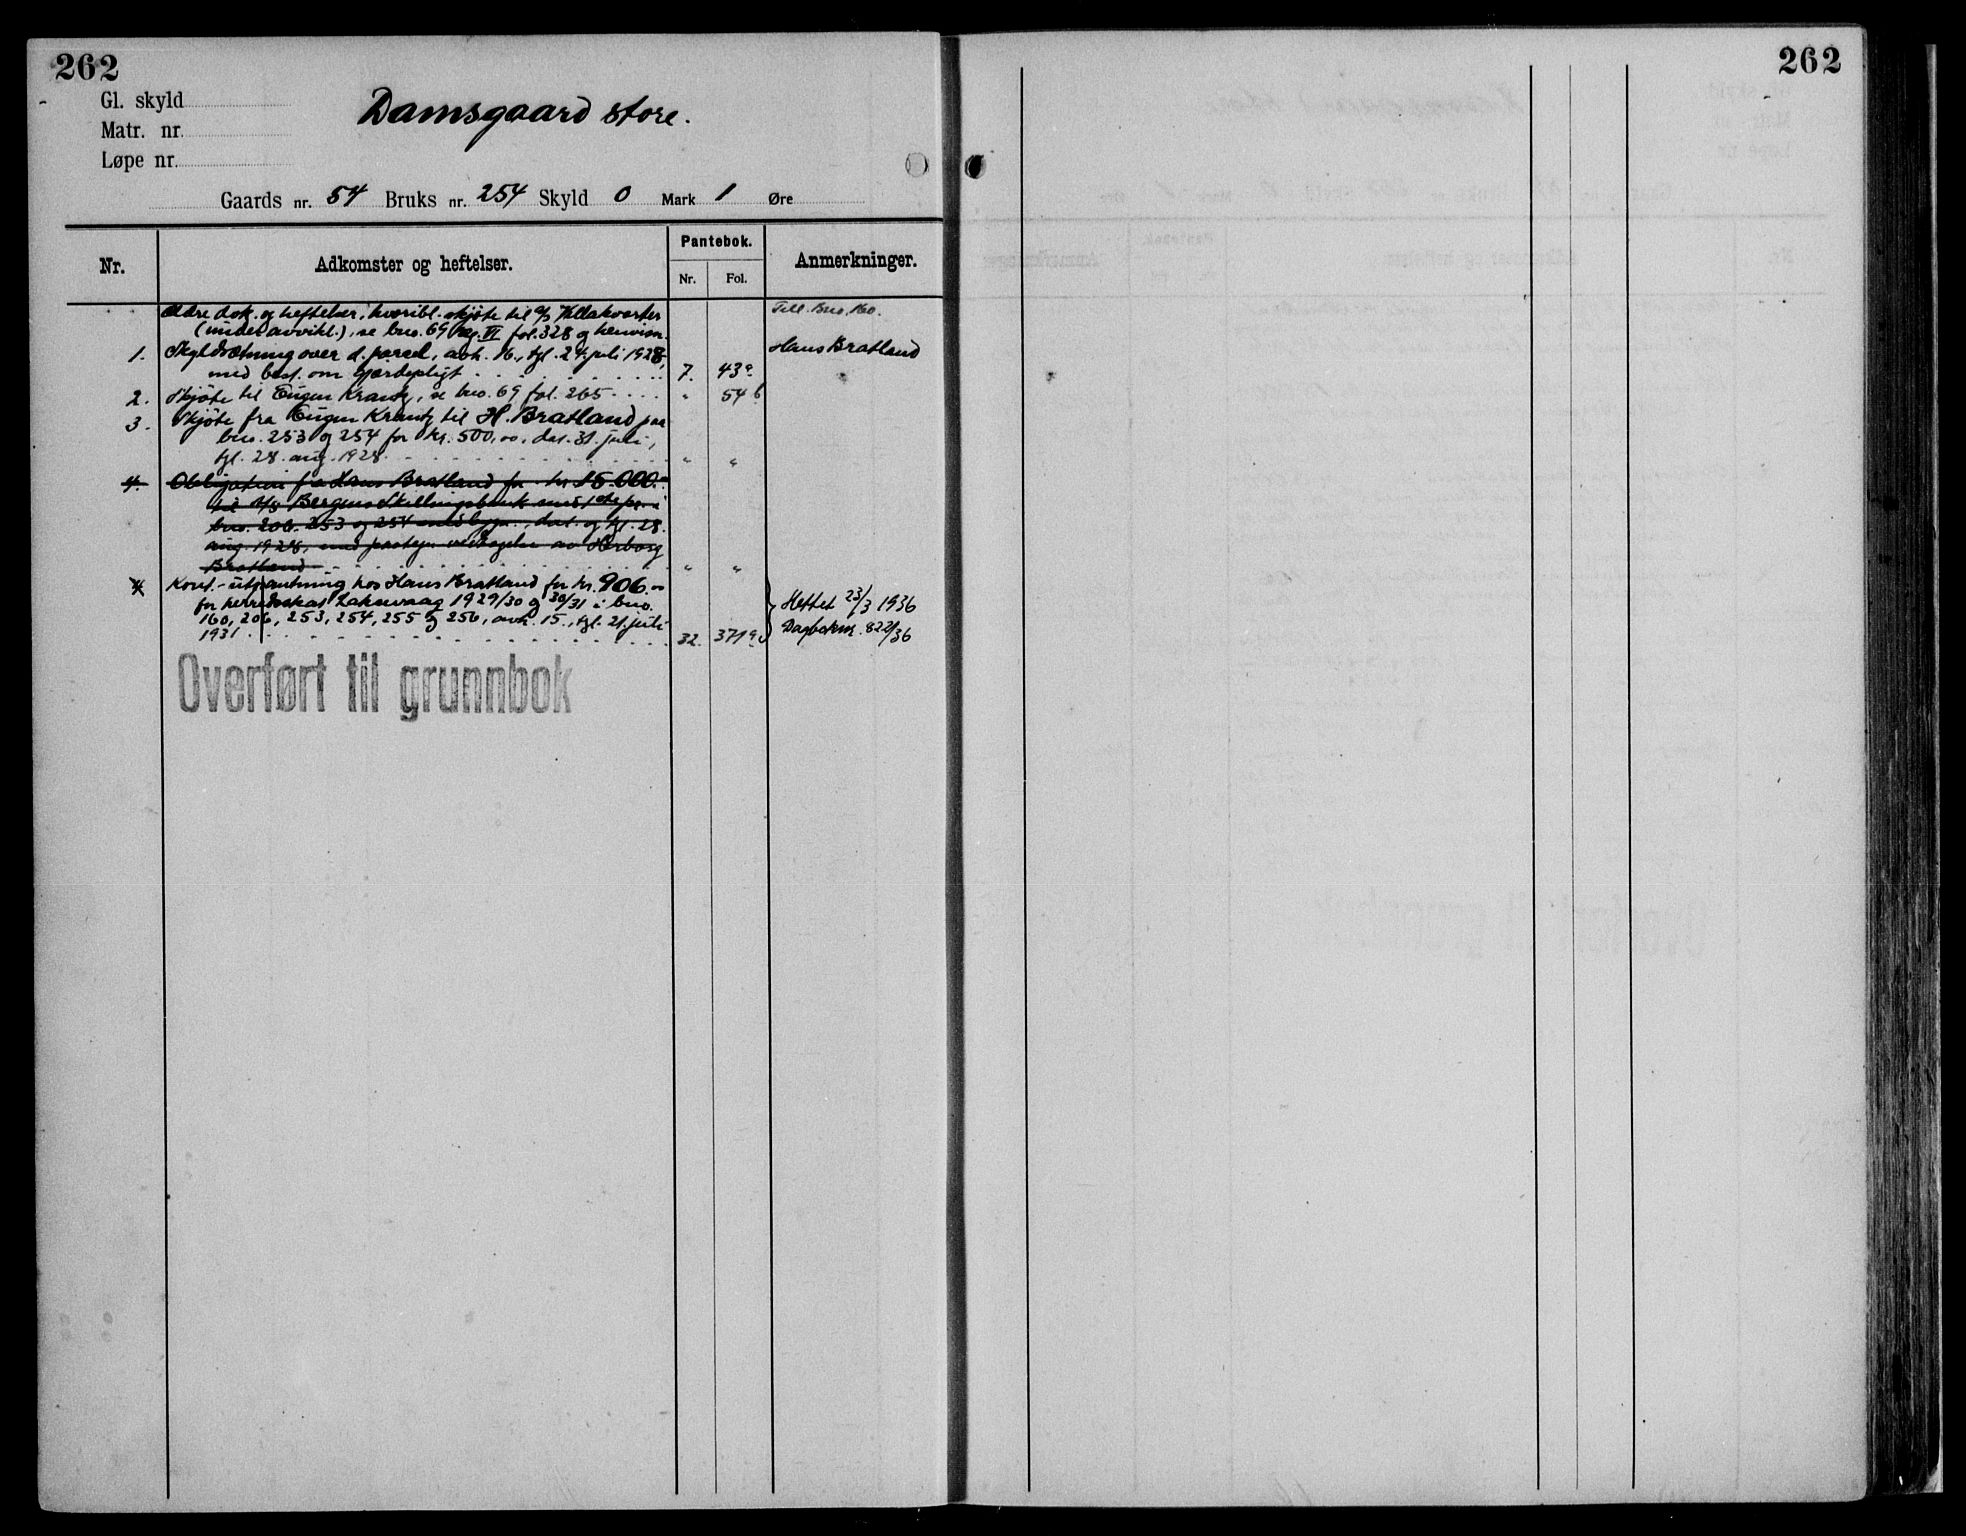 262
262
Gl. skyld
Matr. nr.
Løpe nr.
Damsgaard store.
Gaards nr. 54 Bruks nr. 254 Skyld 0 Mark 1 Øre
Nr.
Adkomster og heftelser.
Pantebok.
Nr. Fol.
Anmerkninger.
Ældre dok. og heftelser, hvoribl. skjøte til A/S
(under avvikl.), se bno. 69 reg. VI fol. 328 og henvisn.
Till. Bno. 160.
1. Skyldsætning over d. parcel, avh. 16., tgl. 24 juli 1928,
med best. om gjærdepligt 7. 43a
Hans Bratland
2. Skjøte til Eugen Krantz, se bno. 69 fol. 265 " 54b
3. Skjøte fra Eugen Krantz til H. Bratland paa
bno. 253 og 254 for kr. 500,00, dat. 31. juli,
tgl. 28. aug. 1928 " "
4. Obligation fra Hans Bratland for kr. 15.000.-
til A/S Bergens Skillingsbank med 1ste pr. i
bno. 206. 253 og 254 med bygn., dat. og tgl. 28.
aug. 1928, med påtegn. vedtagelse av Herborg
Bratland " "
4 Kont.-utpantning hos Hans Bratland for kr. 906.00
for herredsskat Laksevaag 1929/30 og 30/31 i bno.
160, 206, 253, 254, 255 og 256, avh. 15., tgl. 21. juli
1931 32. 371a
Hettet 23/3 1936
Dagboknr. 822/36
Overført til grunnbok